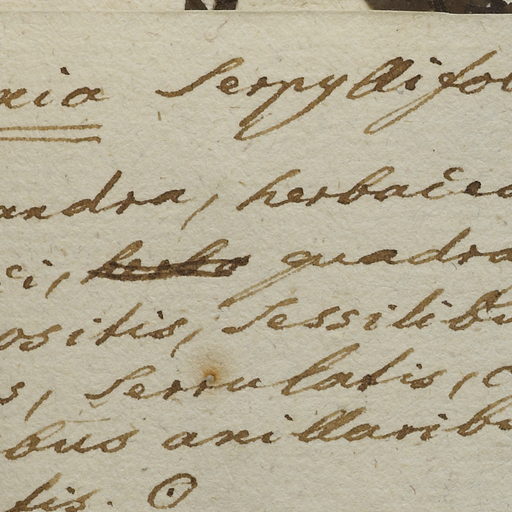 xia Serpyllifol
andra, herbacea
ci, quadra
ositis, Sessilibu
s, Serrulatis, c
bus axillaribu
tis. ☉